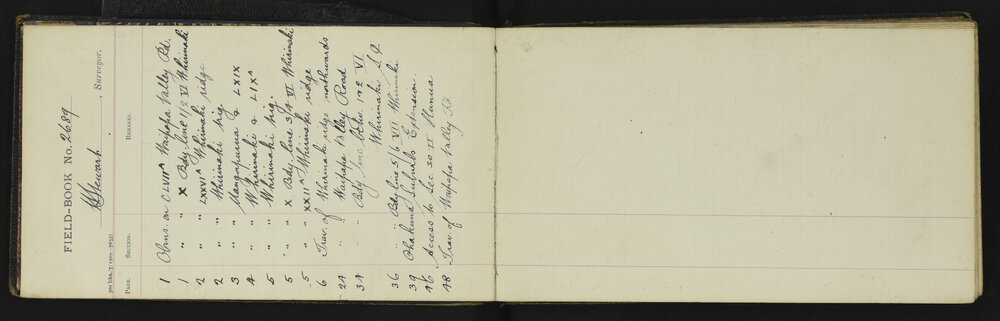 FIELD-BOOK No. 2689
Stewart, Surveyor.
Page. Section. Remarks.
1 Obsns. on C LVII^ Waipapa Valley Rd.
1 " " X Bdy. line 1/2 VI Whirinaki
2 " " LXXVI^ Whirinaki ridge.
2 " " Whirinaki trig.
3 " " & LXIX
4 " " Whirinaki & LIX^
5 " " Whirinaki trig.
5 " " X Bdy. line 3/4 VI Whirinaki
5 " " XXII^ Whirinaki ridge
6 Trav. of Whirinaki ridge northwards
24 " " Waipapa Valley Road
34 " " Bdy line Secs. 1 & 2 VI
Whirinaki S.D.
36 " " Bdy line 5/6 VII Whirinaki
39 Ohakune Suburbs Extension
46 Access to Sec. 30 II Hunua
48 Trav. of Waipapa Valley Rd